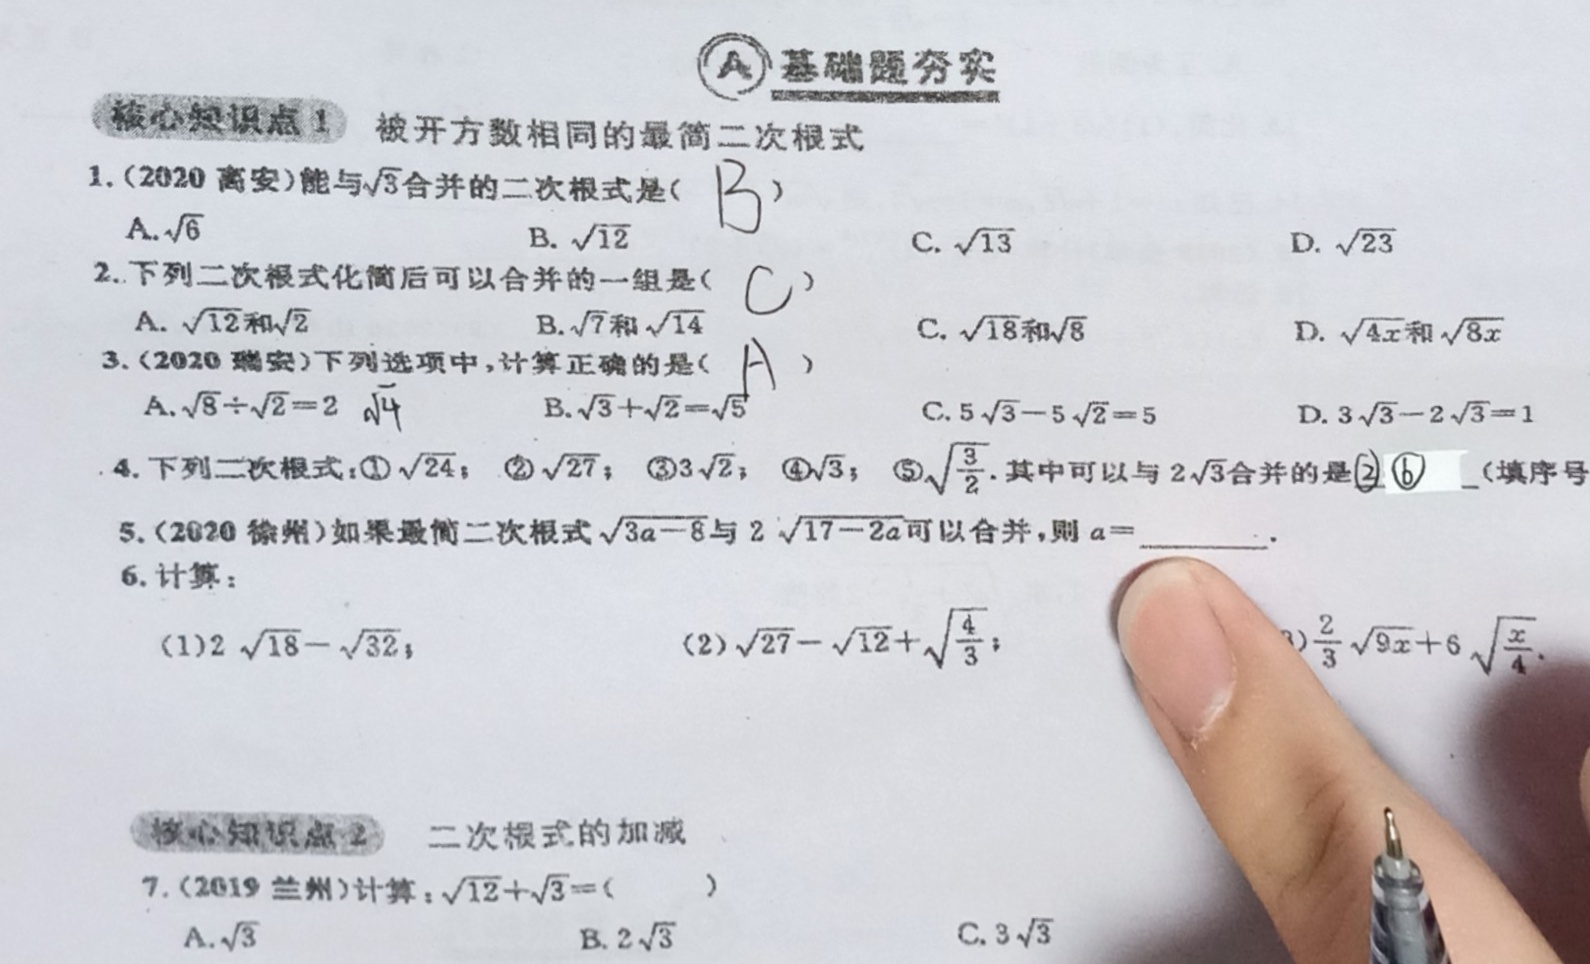 A 基础题夯实
核心知识点1 被开方数相同的最简二次根式
1.(2020 高安)能与√3合并的二次根式是( B )
A.√6 B. √12 C. √13 D. √23
2. 下列二次根式化简后可以合并的一组是( C )
A. √12和√2 B.√7和√14 C. √18和√8 D. √4x和√8x
3.(2020 瑞安)下列选项中,计算正确的是( A )
A.√8÷√2=2 √4 B.√3+√2=√5 C. 5√3-5√2=5 D. 3√3-2√3=1
4. 下列二次根式:①√24; ②√27; ③3√2; ④√3; ⑤√(3/2).其中可以与2√3合并的是② ⑥ _(填序号
5.(2020 徐州)如果最简二次根式√(3a-8)与2√(17-2a)可以合并,则a=______.
6. 计算:
(1)2√18-√32; (2)√27-√12+√(4/3); 3)2/3√9x+6√(x/4).
核心知识点2 二次根式的加减
7.(2019 兰州)计算:√12+√3=( )
A.√3 B. 2√3 C. 3√3